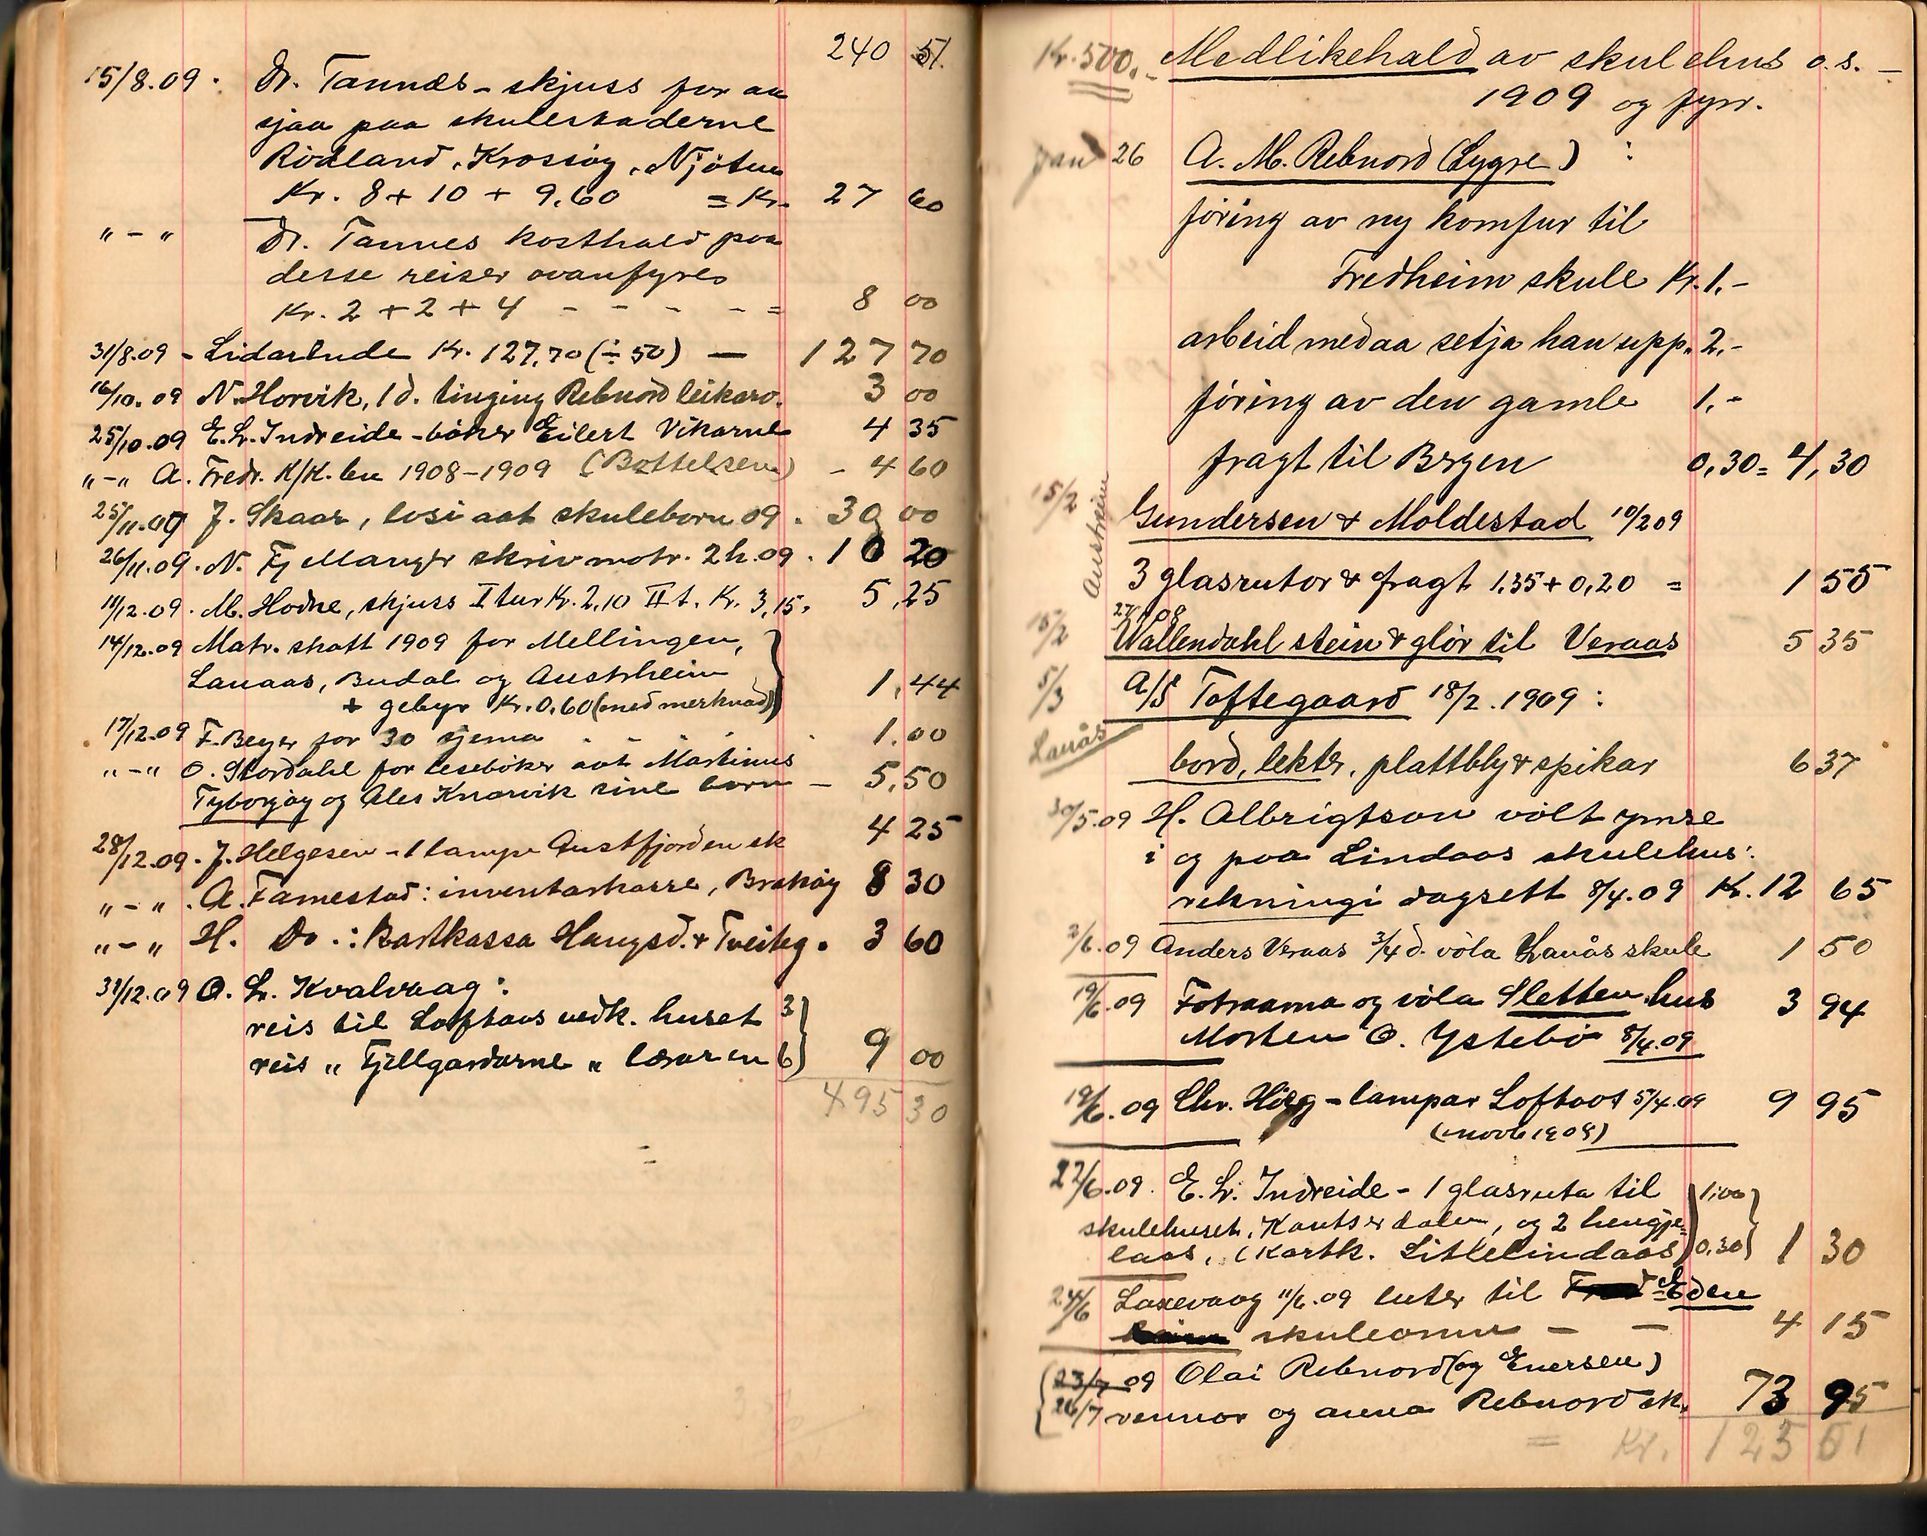 240 51.
15/8.09 : Dr. Tannæs - skjuss for aa
sjaa paa skulestaderne
Rödland, Krossöy, Njöten
Kr. 8 + 10 + 9.60 = Kr. 27 60
" - " Dr. Tannes kosthald paa
desse reiser ovanfyre
Kr. 2 + 2 + 4 - - - - = 8 00
31/8.09 - Lidartude Kr. 127,70 (÷ 50) — 127 70
16/10.09 N. Horvik, 1 d. tinging Rebnord leikarv. 3 00
25/10.09 E. Lr. Indreide - böker Eilert Vikarne 4 35
" - " A. Fredr. K/K. 1908-1909 (Bottelsen) - 4 60
25/11.09 J. Skaar, losi aat skuleborn 09. 30 00
26/11.09. N. Fj Manger skrivmatr. 2 h. 09. 10 20
11/12.09. M. Hodne, skjuss I tur Kr. 2,10 II t. Kr. 3,15. 5,25
14/12.09 Matr. skatt 1909 for Mellingen,
Lanaas, Budal og Austrheim
+ gebyr Kr. 0.60 (med merknad) 1,44
17/12.09 F. Beyer for 30 sjema 1.00
" - " O. Stordahl for lesebøker aat Martinus
Tyborgöy og Ales Knarvik sine born - 5.50
28/12.09. J. Helgesen - 1 lampe Austfjorden sk 4 25
" - " . A. Famestad: inventarkasse, Braköy 8 30
" - " H. Do.: Kartkassa Haugsd. + Tveiteg. 3 60
31/12.09 O. Lr. Kvalvaag:
reis til Loftaas vedk. huset 3
reis " Fjellgardarne " læraren 6 9 00
495 30
Kr. 500,- Medlikehald av skulehus o.s. -
1909 og fyrr.
Jan 26 A. M. Rebnord (Lygre) :
föring av ny komfur til
Fredheim skule Kr. 1.-
arbeid med aa setja han upp. 2.-
föring av den gamle 1.-
fragt til Bergen 0,30 = 4,30
15/2 Austreim Gundersen & Moldestad 10/2 09
3 glasrutor & fragt 1.35 + 0,20 = 1 55
15/2 Wallendahl stein & glör til Veraas 5 35
5/3 A/S Toftegaard 18/2. 1909 :
Lanås bord, lekter, plattbly & spikar 6 37
30/5.09 H. Albrigtson völt ymse
i og paa Lindaas skulehus:
rekningi dagsett 8/4.09 Kr. 12 65
2/6.09 Anders Veraas 3/4 d. völa Lanås skule 1 50
19/6.09 Fotraama og völa Sletten hus 3 94
Morten O. Ystebö 8/4.09
19/6.09 Chr. Haag - lampar Loftaas 5/4.09 9 95
(novb 1908)
22/6.09. E. Lr. Indreide - 1 glasruta til 1,00
skulehuset, Kantserdalen, og 2 hengje=
laas, (Kartk. Litlelindaas) 0,30 1 30
24/6 Laxevaag 11/6.09 luter til Eden
skuleomn - - 4 15
23/7 09 Olai Rebnord (og Enersen)
26/7 vennor og anna Rebnord sk. 73 95
Kr. 125 01